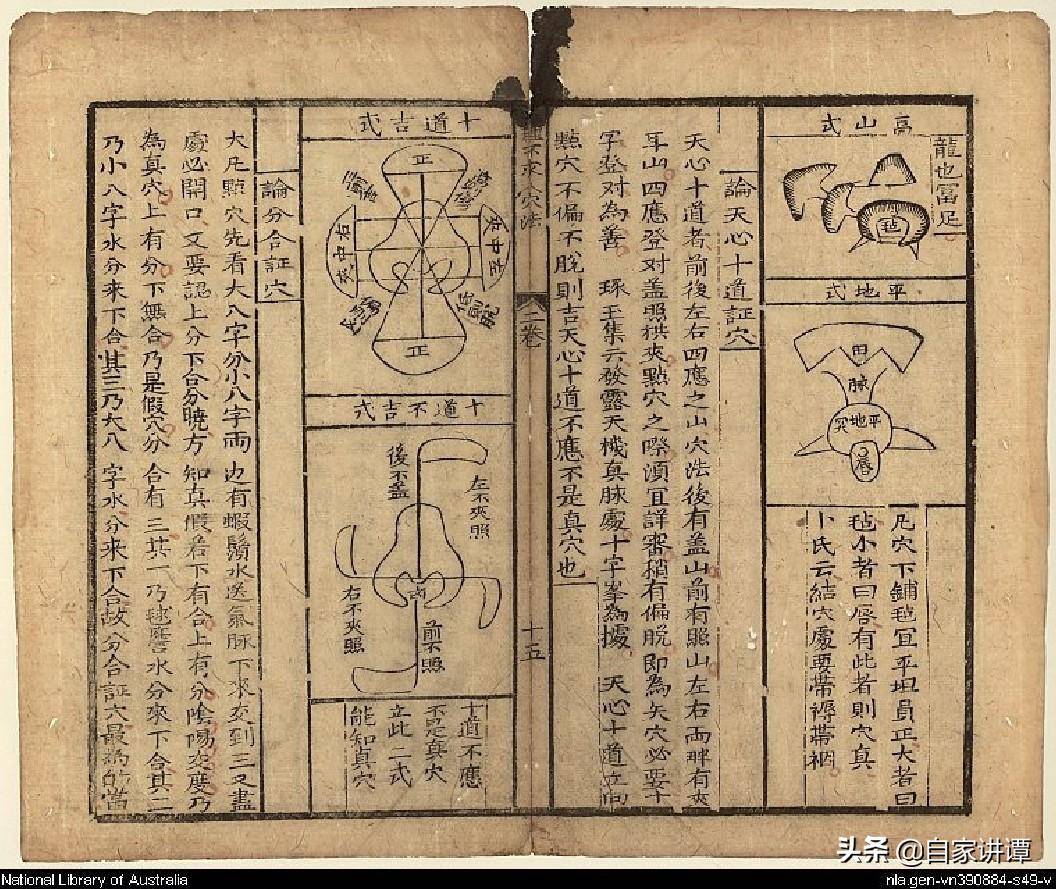 龍也冨足
高山式
毡
平地式
田
脉
平地穴
唇
凡穴下鋪毡冝平坦員正大者曰
毡小者曰唇有此者則穴真
卜氏云結穴處要帶褥帶裀
論天心十道証穴
天心十道者前後左右四應之山穴法後有盖山前有照山左右両畔有夾
耳山四應登对盖照拱夾點穴之際湏宜詳審稍有偏脱即為失穴必要十
字登对為善 琢玉集云發露天機真脉處十字峯為據 天心十道立向
點穴不偏不脱則吉天心十道不應不是真穴也
不求人穴法
二卷
十五
十道吉式
正
正
右中夾
左中夾
正
十道不吉式
後不盖
左不夾照
右不夾照
前不照
穴
十道不應
不是真穴
立此二式
能知真穴
論分合証穴
大凡點穴先看大八字分小八字両边有蝦鬚水送氣脉下來交到三叉盡
處必開口又要認上分下合分曉方知真假若下有合上有分陰陽交度乃
為真穴上有分下無合乃是假穴分合有三其一乃毬簷水分來下合其二
乃小八字水分來下合其三乃大八字水分來下合故分合証穴最為的當
头条 @自家讲谭
National Library of Australia
nla.gen-vn390884-s49-v